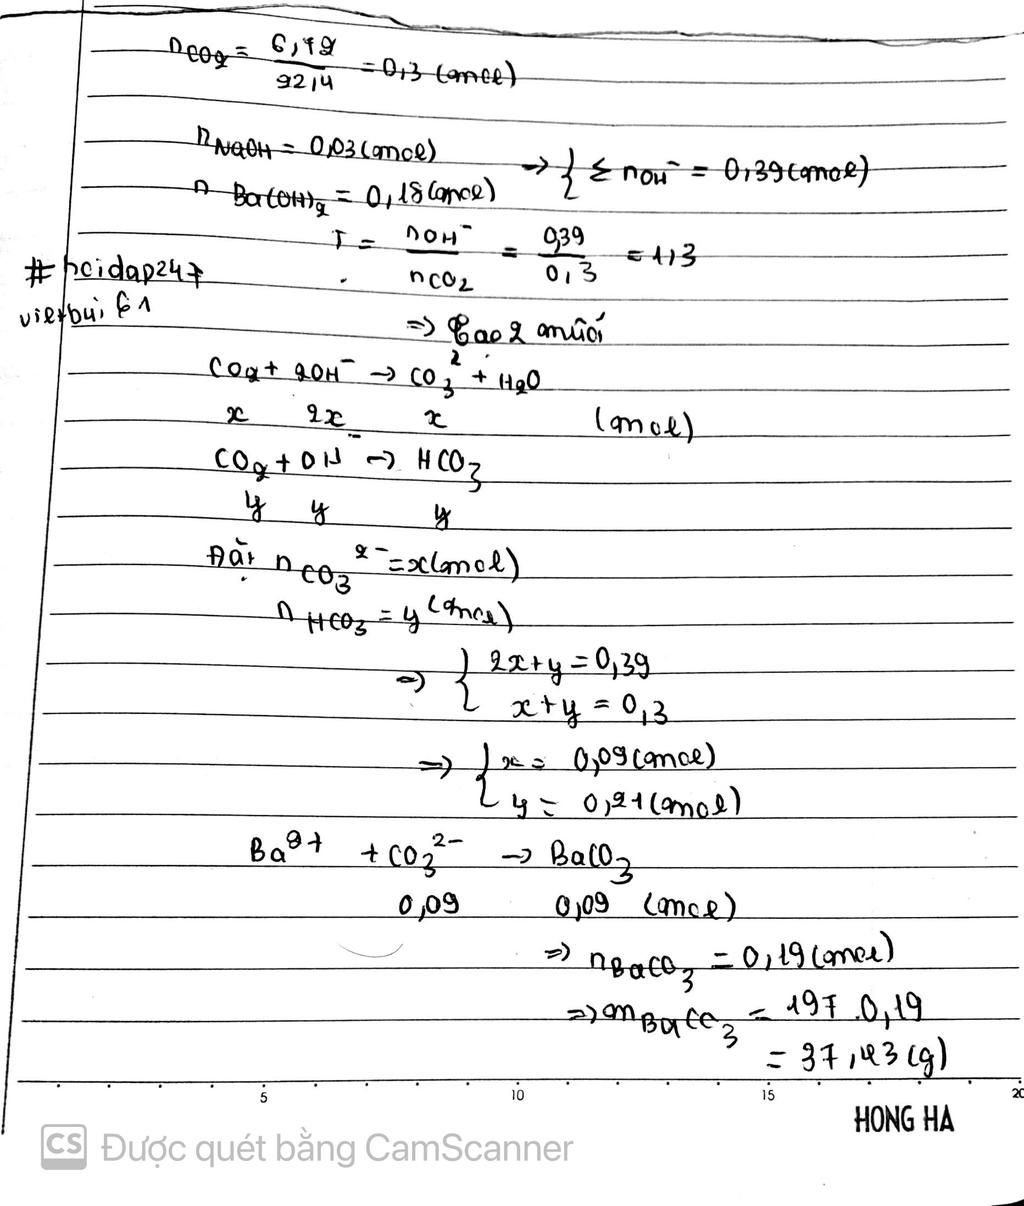 nCO2 = 6,72/22,4 = 0,3 (mol)
nNaOH = 0,03 (mol)
n Ba(OH)2 = 0,18 (mol)
→ { Σ nOH⁻ = 0,39 (mol)
T = nOH⁻/nCO2 = 0,39/0,3 = 1,3
#hoidap247
vietbui61
⇒ Tạo 2 muối
CO2 + 2OH⁻ → CO3²⁻ + H2O
x 2x x (mol)
CO2 + OH⁻ → HCO3
y y y
Đặt nCO3²⁻ = x (mol)
nHCO3 = y (mol)
⇒ { 2x + y = 0,39
x + y = 0,3
⇒ { x = 0,09 (mol)
y = 0,21 (mol)
Ba²⁺ + CO3²⁻ → BaCO3
0,09 0,09 (mol)
⇒ nBaCO3 = 0,19 (mol)
⇒ mBaCO3 = 197 . 0,19
= 37,43 (g)
5 10 15 20
HONG HA
CS Được quét bằng CamScanner